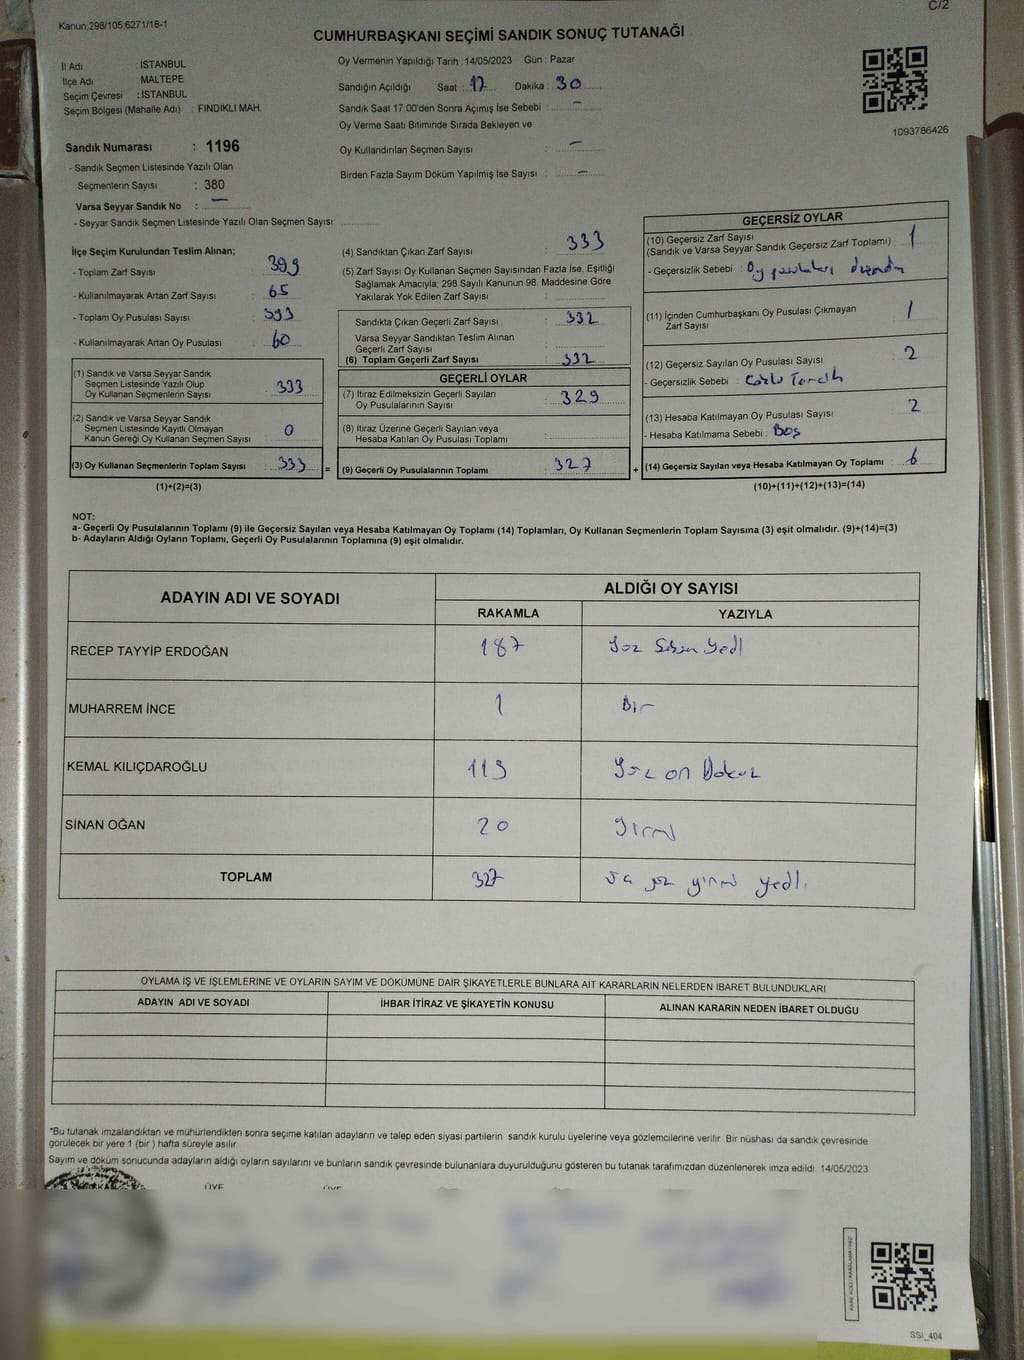 C/2
Kanun;298/105;6271/18-1
CUMHURBAŞKANI SEÇİMİ SANDIK SONUÇ TUTANAĞI
İl Adı : İSTANBUL
İlçe Adı : MALTEPE
Seçim Çevresi : İSTANBUL
Seçim Bölgesi (Mahalle Adı) : FINDIKLI MAH.
Oy Vermenin Yapıldığı Tarih :14/05/2023 Gün : Pazar
Sandığın Açıldığı Saat : 17 Dakika : 30
Sandık Saat 17:00'den Sonra Açımış İse Sebebi : -
Oy Verme Saati Bitiminde Sırada Bekleyen ve
Oy Kullandırılan Seçmen Sayısı : -
Birden Fazla Sayım Döküm Yapılmış İse Sayısı : -
1093786426
Sandık Numarası : 1196
- Sandık Seçmen Listesinde Yazılı Olan
Seçmenlerin Sayısı : 380
Varsa Seyyar Sandık No : -
- Seyyar Sandık Seçmen Listesinde Yazılı Olan Seçmen Sayısı:
İlçe Seçim Kurulundan Teslim Alınan;
- Toplam Zarf Sayısı : 399
- Kullanılmayarak Artan Zarf Sayısı : 65
- Toplam Oy Pusulası Sayısı : 393
- Kullanılmayarak Artan Oy Pusulası : 60
(1) Sandık ve Varsa Seyyar Sandık
Seçmen Listesinde Yazılı Olup
Oy Kullanan Seçmenlerin Sayısı : 333
(2) Sandık ve Varsa Seyyar Sandık
Seçmen Listesinde Kayıtlı Olmayan
Kanun Gereği Oy Kullanan Seçmen Sayısı : 0
(3) Oy Kullanan Seçmenlerin Toplam Sayısı : 333 =
(1)+(2)=(3)
(4) Sandıktan Çıkan Zarf Sayısı : 333
(5) Zarf Sayısı Oy Kullanan Seçmen Sayısından Fazla İse, Eşitliği
Sağlamak Amacıyla; 298 Sayılı Kanunun 98. Maddesine Göre
Yakılarak Yok Edilen Zarf Sayısı :
Sandıkta Çıkan Geçerli Zarf Sayısı : 332
Varsa Seyyar Sandıktan Teslim Alınan
Geçerli Zarf Sayısı :
(6) Toplam Geçerli Zarf Sayısı : 332
GEÇERLİ OYLAR
(7) İtiraz Edilmeksizin Geçerli Sayılan
Oy Pusulalarının Sayısı : 329
(8) İtiraz Üzerine Geçerli Sayılan ve
Hesaba Katılan Oy Pusulası Toplamı :
(9) Geçerli Oy Pusulalarının Toplamı : 327 +
GEÇERSİZ OYLAR
(10) Geçersiz Zarf Sayısı
(Sandık ve Varsa Seyyar Sandık Geçersiz Zarf Toplamı) : 1
- Geçersizlik Sebebi : Oy pusulaları
(11) İçinden Cumhurbaşkanı Oy Pusulası Çıkmayan
Zarf Sayısı : 1
(12) Geçersiz Sayılan Oy Pusulası Sayısı : 2
- Geçersizlik Sebebi : Çoklu Tercih
(13) Hesaba Katılmayan Oy Pusulası Sayısı : 2
- Hesaba Katılmama Sebebi : Boş
(14) Geçersiz Sayılan veya Hesaba Katılmayan Oy Toplamı : 6
(10)+(11)+(12)+(13)=(14)
NOT:
a- Geçerli Oy Pusulalarının Toplamı (9) ile Geçersiz Sayılan veya Hesaba Katılmayan Oy Toplamı (14) Toplamları, Oy Kullanan Seçmenlerin Toplam Sayısına (3) eşit olmalıdır. (9)+(14)=(3)
b- Adayların Aldığı Oyların Toplamı, Geçerli Oy Pusulalarının Toplamına (9) eşit olmalıdır.
ADAYIN ADI VE SOYADI
ALDIĞI OY SAYISI
RAKAMLA YAZIYLA
RECEP TAYYİP ERDOĞAN 187 Yüz Seksen Yedi
MUHARREM İNCE 1 Bir
KEMAL KILIÇDAROĞLU 119 Yüz on Dokuz
SİNAN OĞAN 20 Yirmi
TOPLAM 327 üç yüz yirmi yedi.
OYLAMA İŞ VE İŞLEMLERİNE VE OYLARIN SAYIM VE DÖKÜMÜNE DAİR ŞİKAYETLERLE BUNLARA AİT KARARLARIN NELERDEN İBARET BULUNDUKLARI
ADAYIN ADI VE SOYADI İHBAR İTİRAZ VE ŞİKAYETİN KONUSU ALINAN KARARIN NEDEN İBARET OLDUĞU
*Bu tutanak imzalandıktan ve mühürlendikten sonra seçime katılan adayların ve talep eden siyasi partilerin sandık kurulu üyelerine veya gözlemcilerine verilir. Bir nüshası da sandık çevresinde
görülecek bir yere 1 (bir ) hafta süreyle asılır.
Sayım ve döküm sonucunda adayların aldığı oyların sayılarını ve bunların sandık çevresinde bulunanlara duyurulduğunu gösteren bu tutanak tarafımızdan düzenlenerek imza edildi. 14/05/2023
ÜYE ÜYE
SSİ_404